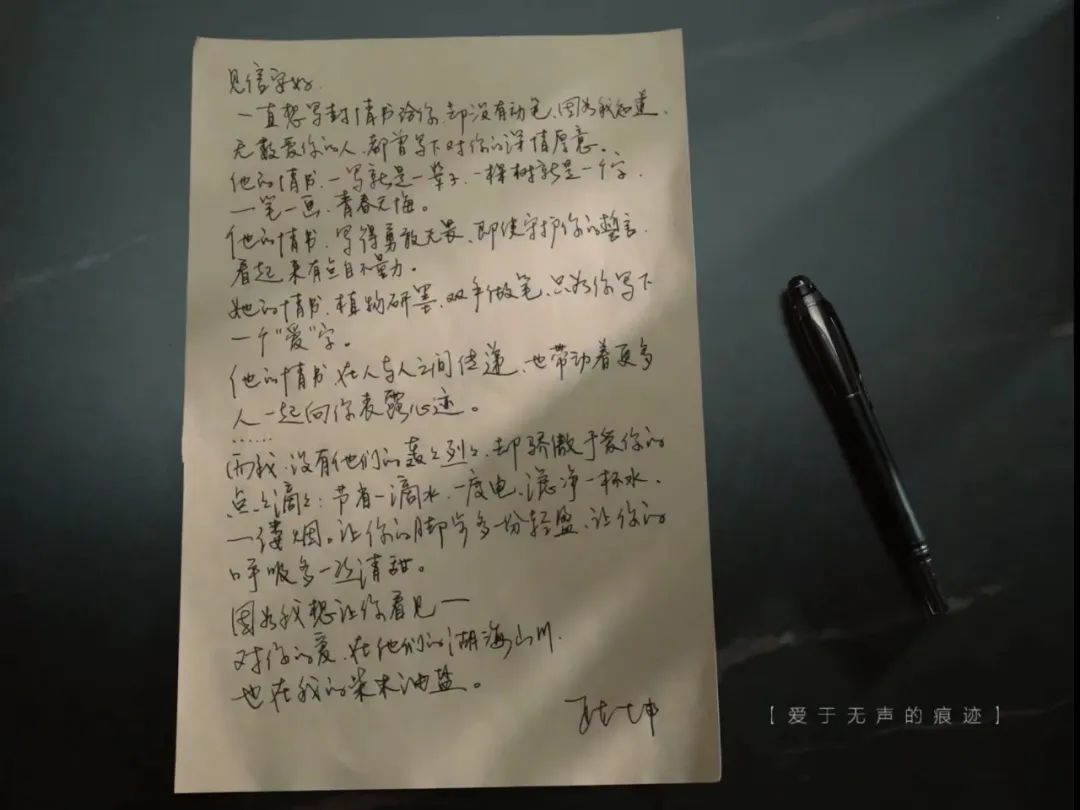 见信字好.
一直想写封情书给你,却没有动笔,因为我知道,
无数爱你的人,都曾写下对你的深情厚意。
他的情书,一写就是一辈子,一棵树就是一个字,
一笔一画,青春无悔。
他的情书,写得勇敢无畏,即使守护你的誓言,
看起来有点自不量力。
她的情书,植物研墨,双手做笔,只为你写下
一个“爱”字。
他的情书,在人与人之间传递,也带动着更多
人一起向你表露心迹。
……
而我,没有他们的轰轰烈烈,却骄傲于爱你的
点点滴滴:节省一滴水,一度电,滤净一杯水,
一缕烟。让你的脚步多一份轻盈,让你的
呼吸多一丝清甜。
因为我想让你看见—
对你的爱,在他们的湖海山川,
也在我的柴米油盐。
【爱于无声的痕迹】